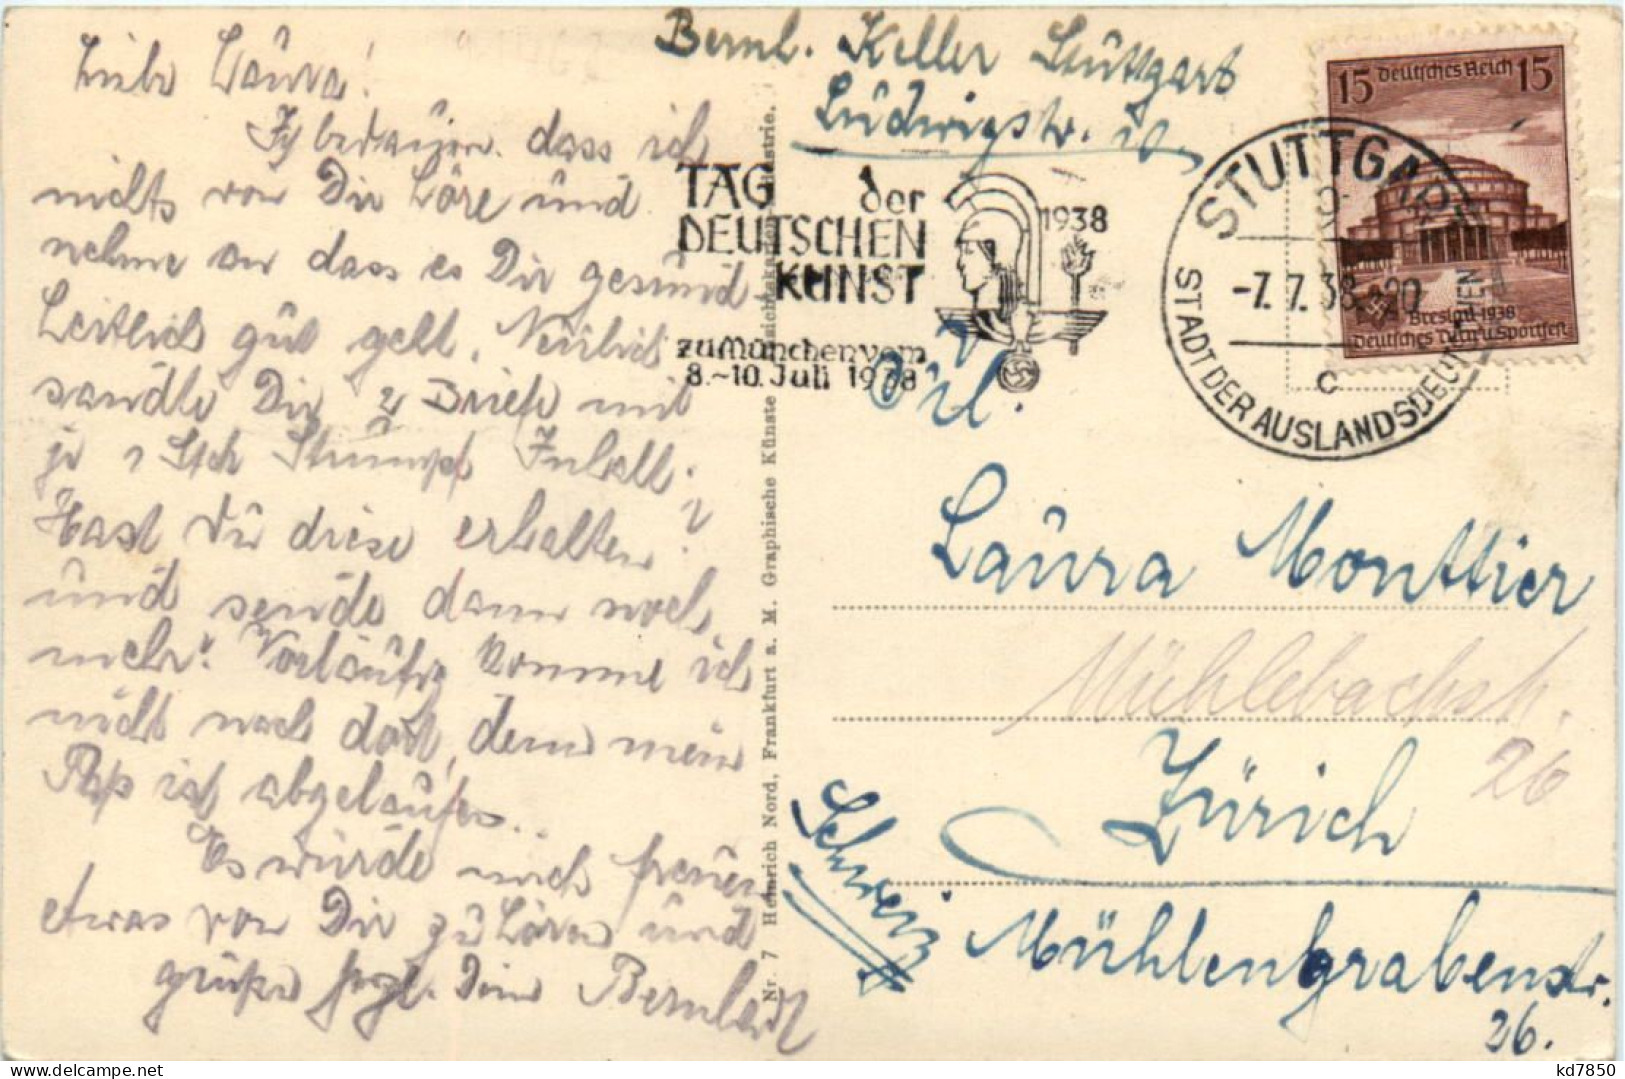 Liebe Laura!
Ich bedaure dass ich
nichts von Dir höre und
nehme an dass es Dir gesund-
heitlich gut geht. Neulich
sandte Dir 2 Briefe mit
je 1 Stck Strümpf Inhalt.
Hast Du diese erhalten?
und sende dann noch
mehr! Vorläufig komme ich
nicht nach dort, denn mein
Pass ist abgelaufen..
Es würde mich freuen
etwas von Dir zu hören und
grüße Dein Bernhard
Nr. 7 Heinrich Nord, Frankfurt a. M. Graphische Künste
Bernh. Keller Stuttgart
Ludwigstr.
TAG der
DEUTSCHEN
KUNST
1938
zu München vom
8.-10. Juli 1938
STUTTGART
-7.7.38.-20
c
STADT DER AUSLANDSDEUTSCHEN
15 Deutsches Reich 15
Breslau 1938
Deutsches Turn-u. Sportfest
Frl.
Laura Monttier
Mühlebachstr.
26
Zürich
Schweiz
Mühlengrabenstr.
26.
kd7850